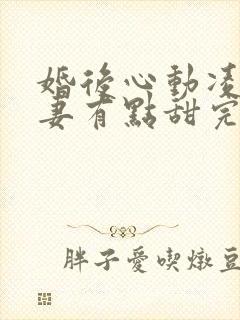 婚後心動凌
妻有點甜完
胖子愛喫燉豆